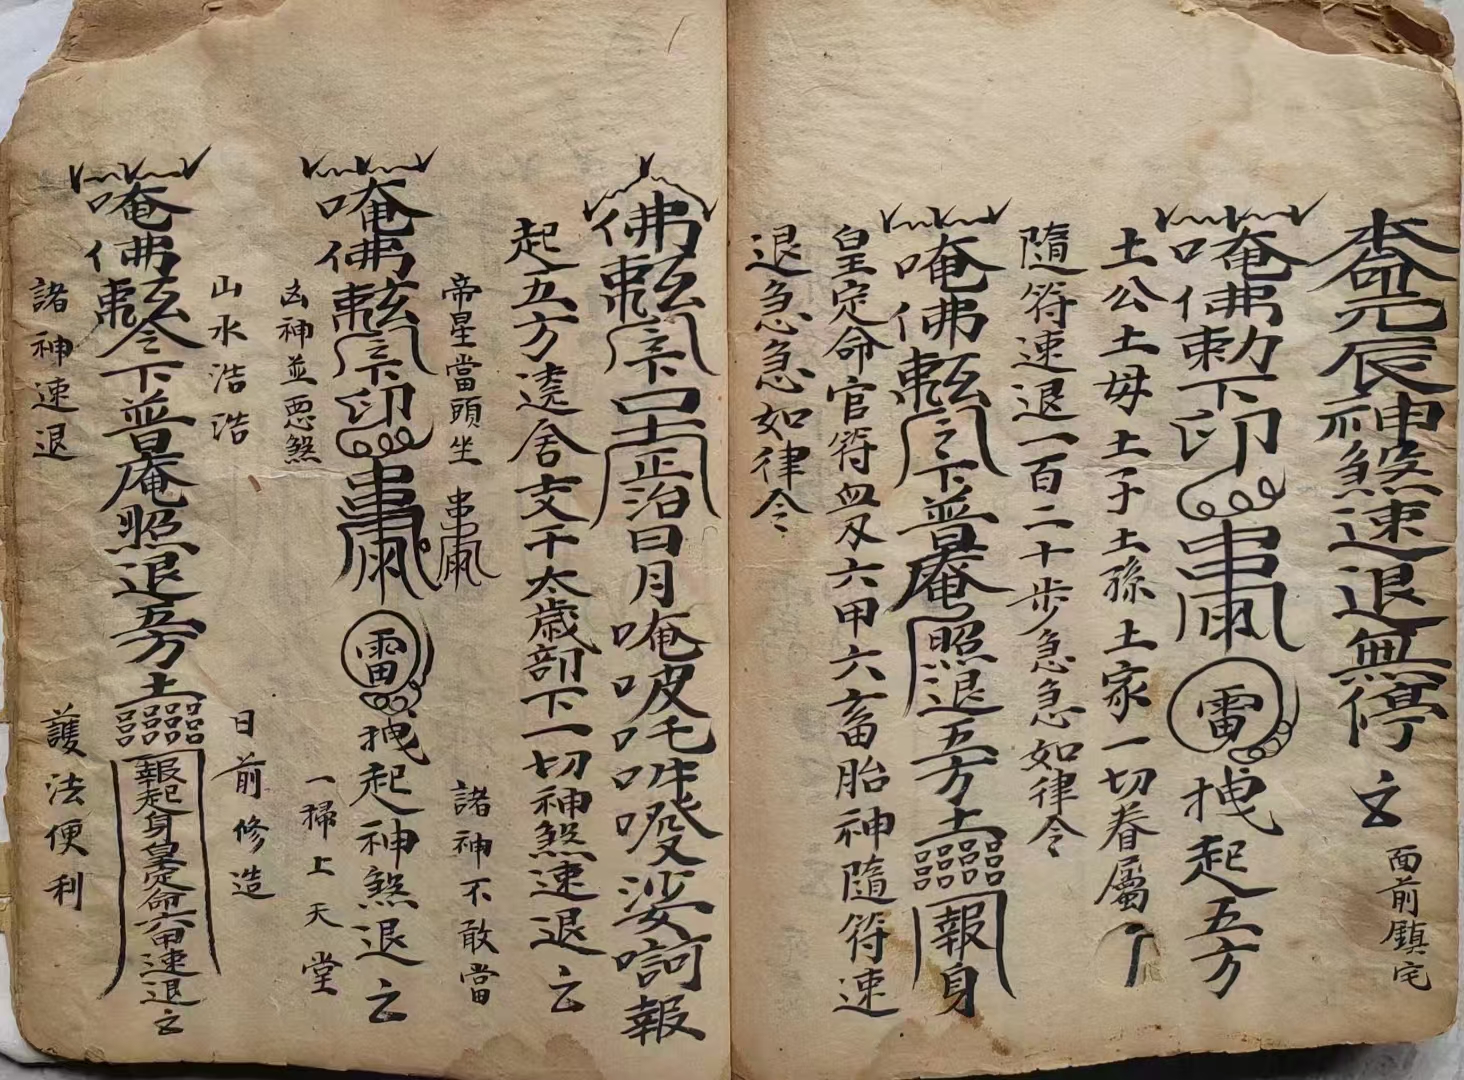 本命元辰神煞速退無停 云
面前鎮宅
唵佛勅下印
雷拽起五方
土公土母土子土孫土家一切眷屬
隨符速退一百二十步急急如律令
唵佛勅令下普庵照退五方土
報身
皇定命官符血刃六甲六畜胎神隨符速
退急急如律令
佛勅令下
正治日月唵吸吒㗶㗶娑訶報
起五方遶舍支干太歲部下一切神煞速退云
帝星當頭坐
諸神不敢當
唵佛勅令下印
雷拽起神煞退云
凶神並惡煞
一掃上天堂
山水浩浩
日前修造
唵佛勅令下普庵照退五方土
報起身皇定命六甲速退云
諸神速退
護法便利